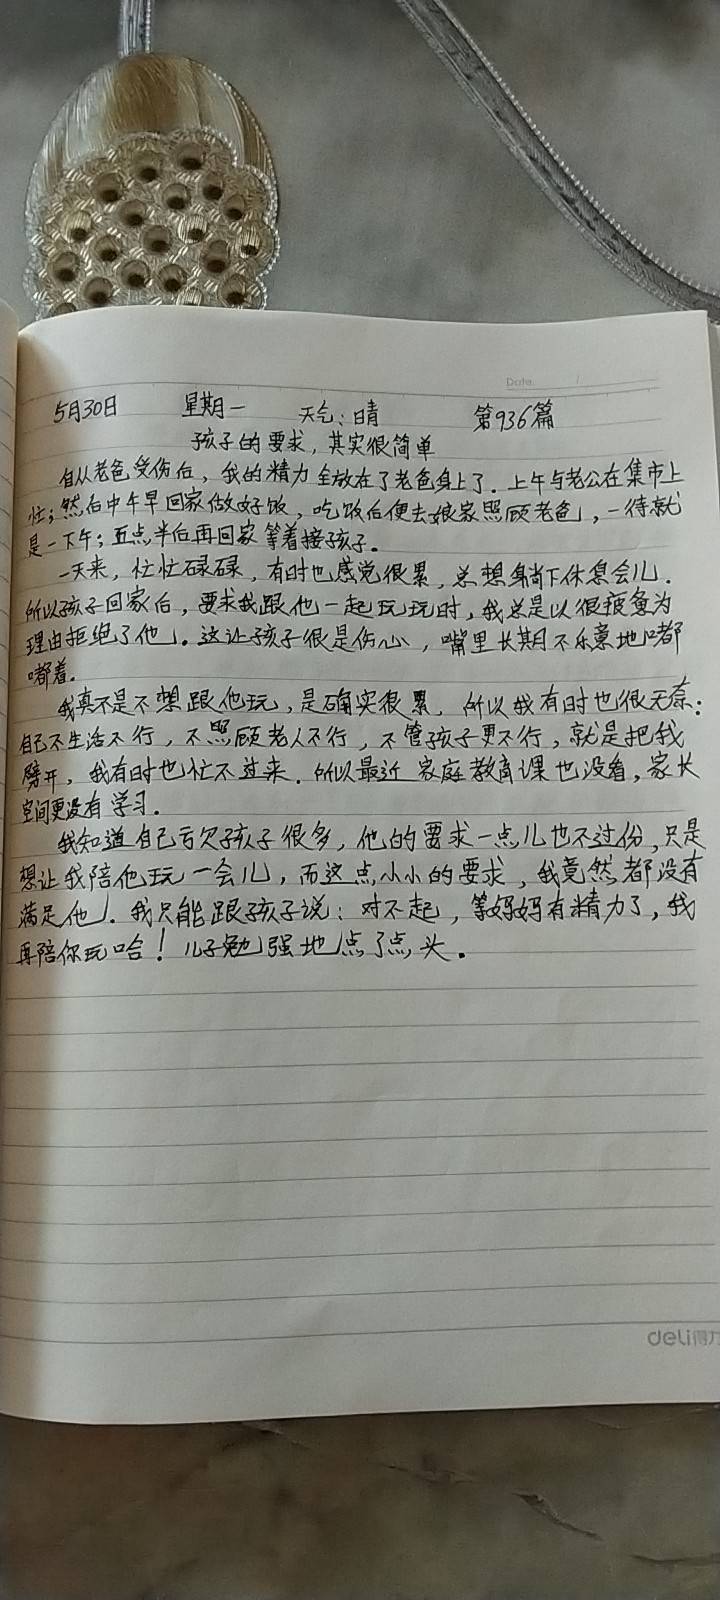 Date
5月30日 星期一 天气:晴 第936篇
孩子的要求,其实很简单
自从老爸受伤后,我的精力全放在了老爸身上了.上午与老公在集市上
忙;然后中午早回家做好饭,吃饭后便去娘家照顾老爸,一待就
是一下午;五点半后再回家等着接孩子.
一天来,忙忙碌碌,有时也感觉很累,总想躺下休息会儿.
所以孩子回家后,要求我跟他一起玩玩时,我总是以很疲惫为
理由拒绝了他.这让孩子很是伤心,嘴里长期不乐意地嘟
嘟着.
我真不是不想跟他玩,是确实很累,所以我有时也很无奈:
自己不生活不行,不照顾老人不行,不管孩子更不行,就是把我
劈开,我有时也忙不过来.所以最近家庭教育课也没看,家长
空间更没有学习.
我知道自己亏欠孩子很多,他的要求一点儿也不过份,只是
想让我陪他玩一会儿,而这点小小的要求,我竟然都没有
满足他.我只能跟孩子说:对不起,等妈妈有精力了,我
再陪你玩哈!儿子勉强地点了点头.
deli得力